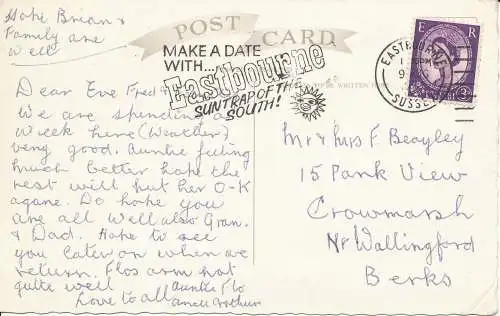 Hope Brian &
Family are
Well
POST CARD
MAKE A DATE
WITH...
Eastbourne
SUNTRAP OF THE
SOUTH!
E R
EASTBOURNE
SUSSEX
WRITTEN HERE
Dear Eve Fred &
We are spending a
week here (Weather)
veng good. Auntie feeling
much better hope the
rest will put her O-K
agane. Do hope you
are all well also Gran.
& Dad. Hope to see
you later on when we
return. Flos arm not
quite well Auntie Flo
Love to all Arthur
Mr & Mrs F Beayley
15 Park View
Crowmarsh
Nr Wallingford
Berks